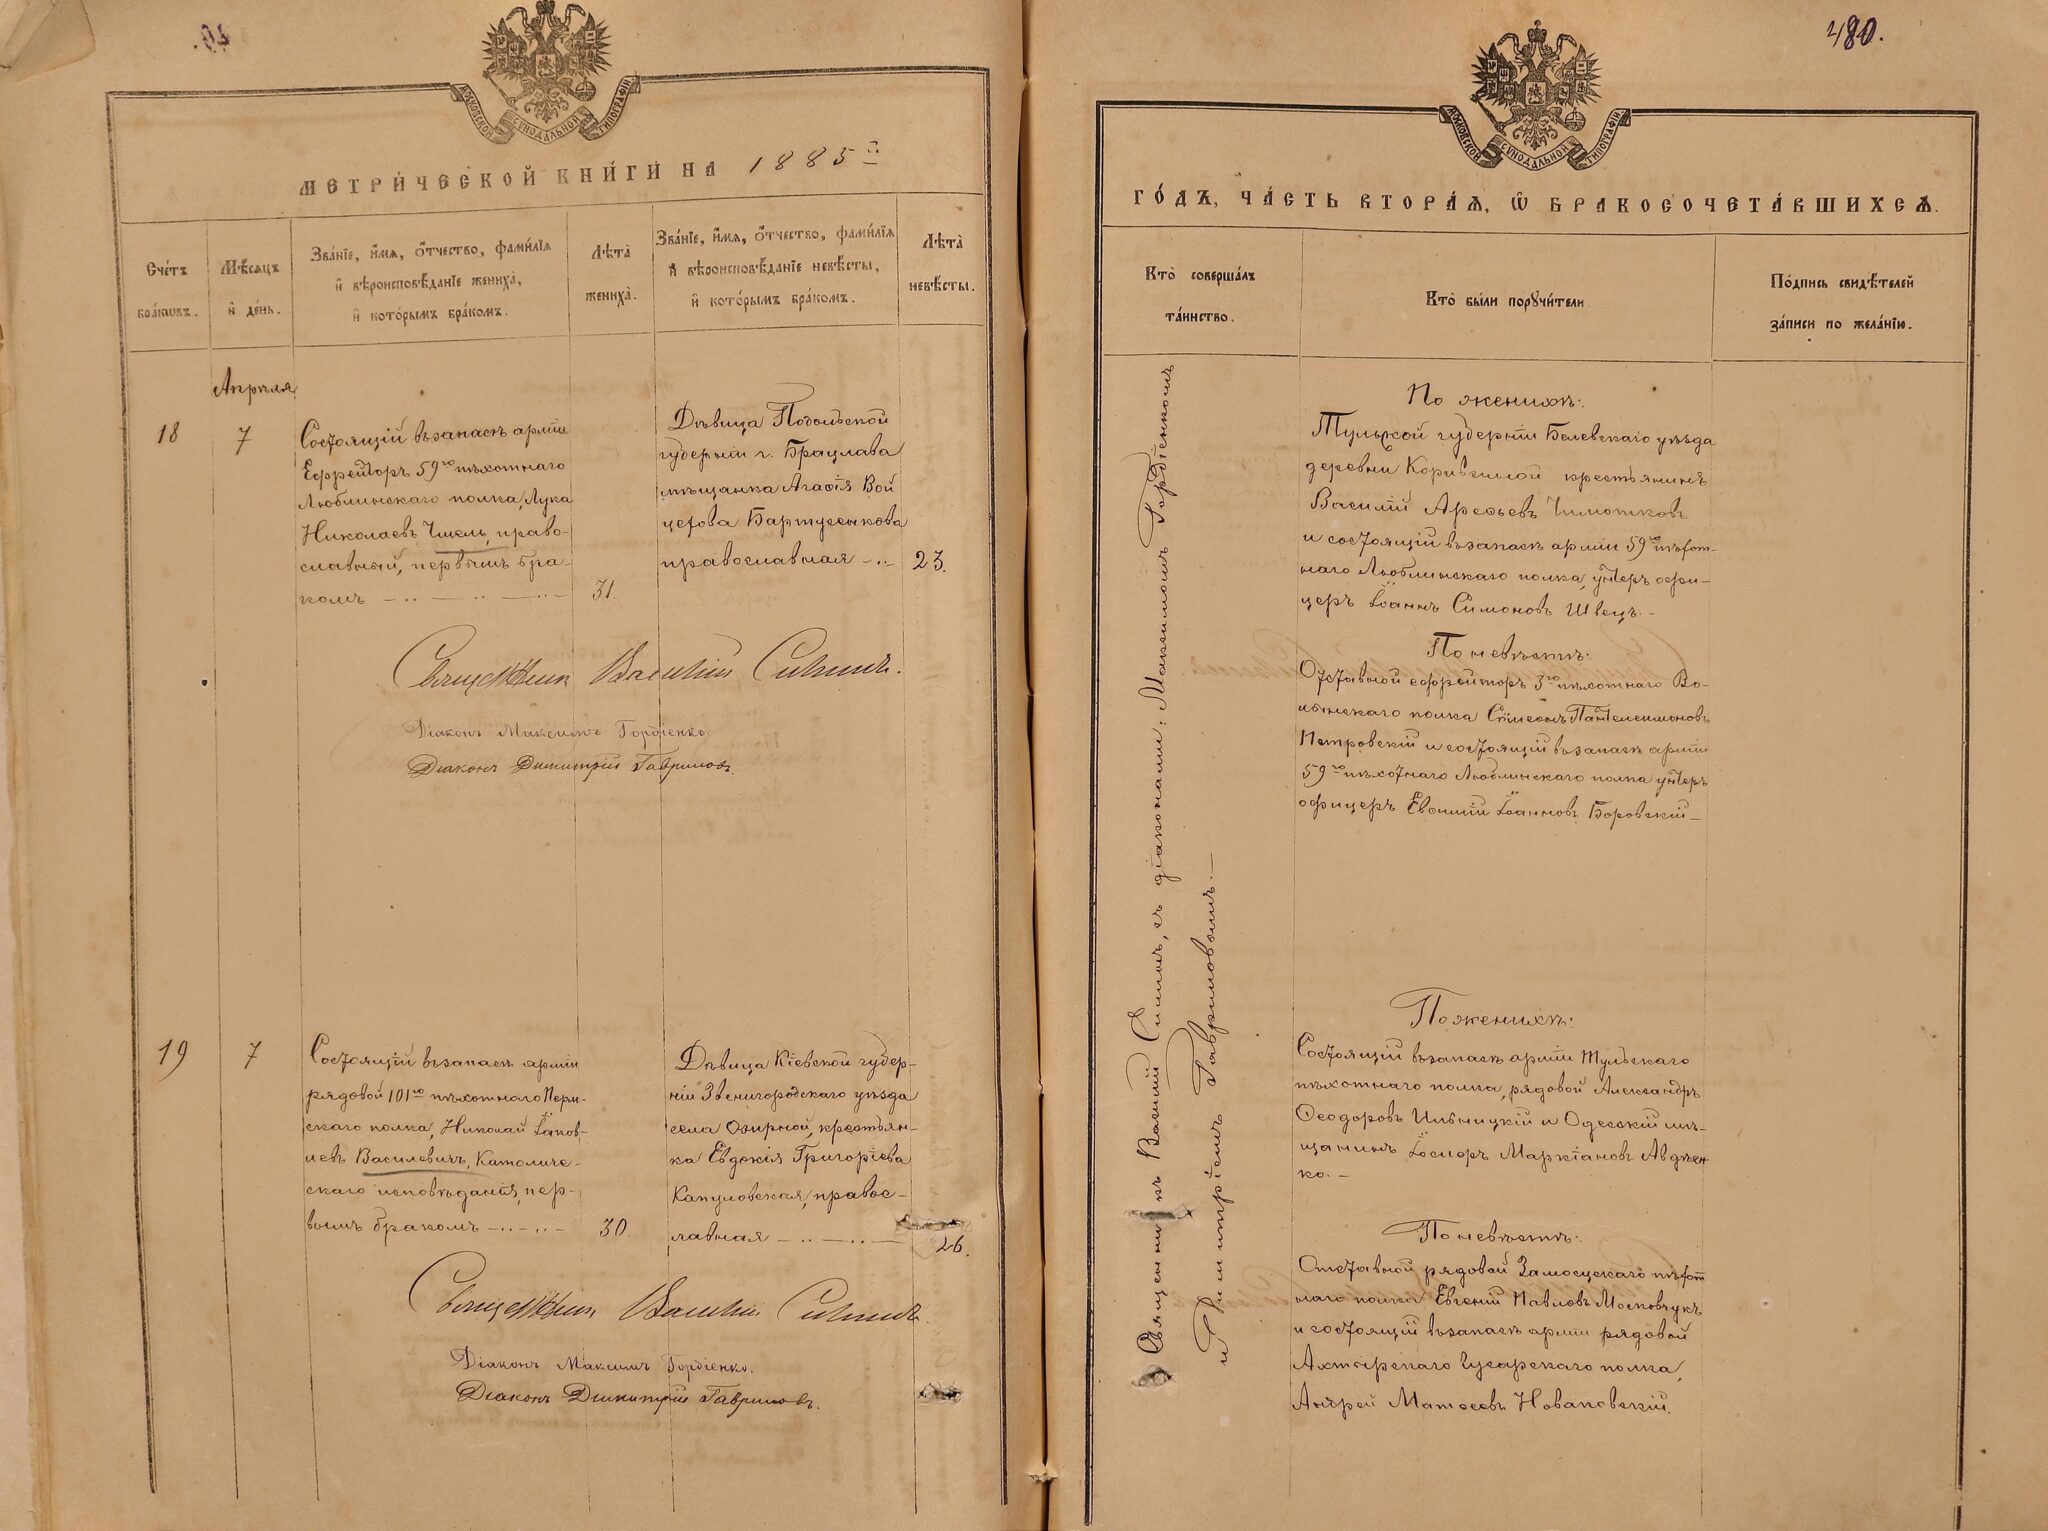 МОСКОВСКОЙ СѴНОДАЛЬНОЙ ТИПОГРАФІИ
МЕТРИ́ЧЕСКОЙ КНИ́ГИ НА 1885й
Сче́тъ бра́кѡвъ.
Мѣ́сѧцъ и҆ де́нь.
Зва́нїе, и҆́мѧ, ѻ҆́тчество, фами́лїѧ
и҆ вѣроисповѣ́данїе жениха̀,
и҆ кото́рымъ бра́комъ.
Лѣта̀ жениха̀.
Зва́нїе, и҆́мѧ, ѻ҆́тчество, фами́лїѧ
и҆ вѣроисповѣ́данїе невѣ́сты,
и҆ кото́рымъ бра́комъ.
Лѣта̀ невѣ́сты.
Апрѣля
18
7
Состоящій въ запасѣ арміи
Ефрейторъ 59го пѣхотнаго
Люблинскаго полка, Лука
Николаевъ Чмель, право-
славный, первымъ бра-
комъ
31.
Дѣвица Подольской
губерніи г. Брацлава
мѣщанка Агаѳія Вой
цехова Бартусенкова
православная
23.
Священникъ Василій
Діаконъ Максимъ Гордіенко.
Діаконъ Димитрій Гавриловъ.
19
7
Состоящій въ запасѣ арміи
рядовой 101го пѣхотнаго Перм-
скаго полка, Николай Іаков-
левъ Василевичъ, Католиче-
скаго исповѣданія, пер-
вымъ бракомъ
30.
Дѣвица Кіевской губер-
ніи Звенигородскаго уѣзда
села Озирной, крестьян-
ка Евдокія Григоріева
Капуловская, правос-
лавная
26.
Священникъ Василій
Діаконъ Максимъ Гордіенко.
Діаконъ Димитрій Гавриловъ.
480.
МОСКОВСКОЙ СѴНОДАЛЬНОЙ ТИПОГРАФІИ
ГО́ДЪ, ЧА́СТЬ ВТОРА́Ѧ, Ѽ БРАКОСОЧЕТА́ВШИХСѦ.
Кто̀ соверша́лъ
та́инство.
Кто̀ бы́ли порꙋчи́тели.
По́дпись свидѣ́телей
за́писи по жела́нїю.
Священникъ Василій съ діаконами: Максимомъ Гордіенкомъ
и Димитріемъ Гавриловымъ.
По женихѣ:
Тульской губерніи Белевскаго уѣзда
деревни крестьянинъ
Василій Ареѳьевъ
и состоящій въ запасѣ арміи 59го пѣхот-
наго Люблинскаго полка, унтеръ офи-
церъ Іоаннъ Симоновъ Швецъ.
По невѣстѣ:
Отставной ефрейторъ 3го пѣхотнаго Во-
лынскаго полка Сѵмеонъ Пантелеимоновъ
Петровскій и состоящій въ запасѣ арміи
59го пѣхотнаго Люблинскаго полка унтеръ
офицеръ Евѳимій Іоанновъ Боровскій
По женихѣ:
Состоящій въ запасѣ арміи Тульскаго
пѣхотнаго полка, рядовой Александръ
Ѳеодоровъ Ильницкій и Одесскій мѣ-
щанинъ Маркіановъ Авдѣен
ко.
По невѣстѣ:
Отставной рядовой Замосцскаго пѣхот
наго полка Евгеній Павловъ Московчукъ
и состоящій въ запасѣ арміи рядовой
Ахтырскаго Гусарскаго полка,
Андрей Матѳеевъ Новаковскій.